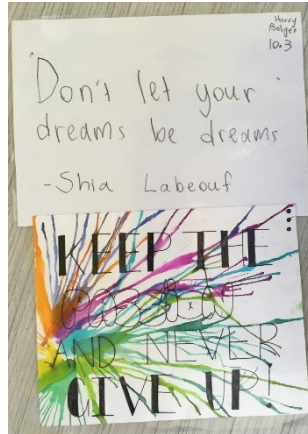 Harry
Bolger
10.3
"Don't let your"
dreams be dreams
-Shia Labeouf
KEEP THE
AND NEVER
GIVE UP!